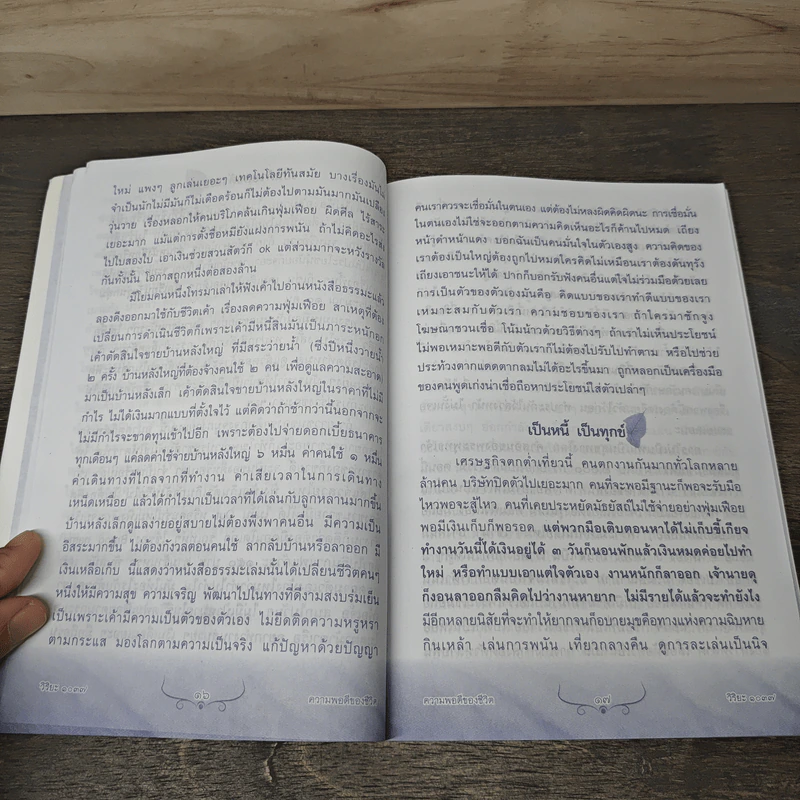 ใหม่ แพงๆ ลูกเล่นเยอะๆ เทคโนโลยีทันสมัย บางเรื่องมันไม่
จำเป็นนักไม่มีมันก็ไม่เดือดร้อนก็ไม่ต้องไปตามมันมากมันเปลือง
วุ่นวาย เรื่องหลอกให้คนบริโภคล้นเกินฟุ่มเฟือย ผิดศีล ไร้สาระ
เยอะมาก แม้แต่การตั้งชื่อหมียังแฝงการพนัน ถ้าไม่คิดอะไรส่ง
ไปใบสองใบ เอาเงินช่วยสวนสัตว์ก็ ok แต่ส่วนมากจะหวังรางวัล
กันทั้งนั้น โอกาสถูกหนึ่งต่อสองล้าน
มีโยมคนหนึ่งโทรมาเล่าให้ฟังเค้าไปอ่านหนังสือธรรมะแล้ว
ลองดึงออกมาใช้กับชีวิตเค้า เรื่องลดความฟุ่มเฟือย สาเหตุที่ต้อง
เปลี่ยนการดำเนินชีวิตก็เพราะเค้ามีหนี้สินมันเป็นภาระหนักอก
เค้าตัดสินใจขายบ้านหลังใหญ่ ที่มีสระว่ายน้ำ (ซึ่งปีหนึ่งว่ายน้ำ
๒ ครั้ง บ้านหลังใหญ่ที่ต้องจ้างคนใช้ ๒ คน เพื่อดูแลความสะอาด)
มาเป็นบ้านหลังเล็ก เค้าตัดสินใจขายบ้านหลังใหญ่ในราคาที่ไม่มี
กำไร ไม่ได้เงินมากแบบที่ตั้งใจไว้ แต่คิดว่าถ้าช้ากว่านี้นอกจากจะ
ไม่มีกำไรจะขาดทุนเข้าไปอีก เพราะต้องไปจ่ายดอกเบี้ยธนาคาร
ทุกเดือนๆ แค่ลดค่าใช้จ่ายบ้านหลังใหญ่ ๖ หมื่น ค่าคนใช้ ๑ หมื่น
ค่าเดินทางที่ไกลจากที่ทำงาน ค่าเสียเวลาในการเดินทาง
เหน็ดเหนื่อย แล้วได้กำไรมาเป็นเวลาที่ได้เล่นกับลูกหลานมากขึ้น
บ้านหลังเล็กดูแลง่ายอยู่สบายไม่ต้องพึ่งพาคนอื่น มีความเป็น
อิสระมากขึ้น ไม่ต้องกังวลตอนคนใช้ ลากลับบ้านหรือลาออก มี
เงินเหลือเก็บ นี้แสดงว่าหนังสือธรรมะเล่มนั้นได้เปลี่ยนชีวิตคนๆ
หนึ่งให้มีความสุข ความเจริญ พัฒนาไปในทางที่ดีงามสงบร่มเย็น
เป็นเพราะเค้ามีความเป็นตัวของตัวเอง ไม่ยึดติดความหรูหรา
ตามกระแส มองโลกตามความเป็นจริง แก้ปัญหาด้วยปัญญา
วิริยะ ๑๐๓๗
๑๖
ความพอดีของชีวิต
คนเราควรจะเชื่อมั่นในตนเอง แต่ต้องไม่หลงผิดคิดผิดนะ การเชื่อมั่น
ในตนเองไม่ใช่จะออกตามความคิดเห็นอะไรก็ค้านไปหมด เถียง
หน้าดำหน้าแดง บอกฉันเป็นคนมั่นใจในตัวเองสูง ความคิดของ
เราต้องเป็นใหญ่ต้องถูกไปหมดใครคิดไม่เหมือนเราต้องดันทุรัง
เถียงเอาชนะให้ได้ ปากก็บอกรับฟังคนอื่นแต่ใจไม่ร่วมมือด้วยเลย
การเป็นตัวของตัวเองมันคือ คิดแบบของเราทำดีแบบของเรา
เหมาะสมกับตัวเรา ความชอบของเรา ถ้าใครมาชักจูง
โฆษณาชวนเชื่อ โน้มน้าวด้วยวิธีต่างๆ ถ้าเราไม่เห็นประโยชน์
ไม่พอเหมาะพอดีกับตัวเราก็ไม่ต้องไปรับไปทำตาม หรือไปช่วย
ประท้วงตากแดดตากลมไม่ได้อะไรขึ้นมา ถูกหลอกเป็นเครื่องมือ
ของคนพูดเก่งน่าเชื่อถือหาประโยชน์ใส่ตัวเปล่าๆ
เป็นหนี้ เป็นทุกข์
เศรษฐกิจตกต่ำเที่ยวนี้ คนตกงานกันมากทั่วโลกหลาย
ล้านคน บริษัทปิดตัวไปเยอะมาก คนที่จะพอมีฐานะก็พอจะรับมือ
ไหวพอจะสู้ไหว คนที่เคยประหยัดมัธยัสถ์ไม่ใช้จ่ายอย่างฟุ่มเฟือย
พอมีเงินเก็บก็พอรอด แต่พวกมือเติบตอนหาได้ไม่เก็บขี้เกียจ
ทำงานวันนี้ได้เงินอยู่ได้ ๓ วันก็นอนพักแล้วเงินหมดค่อยไปทำ
ใหม่ หรือทำแบบเอาแต่ใจตัวเอง งานหนักก็ลาออก เจ้านายดุ
ก็งอนลาออกลืมคิดไปว่างานหายาก ไม่มีรายได้แล้วจะทำยังไง
มีอีกหลายนิสัยที่จะทำให้ยากจนก็อบายมุขคือทางแห่งความฉิบหาย
กินเหล้า เล่นการพนัน เที่ยวกลางคืน ดูการละเล่นเป็นนิจ
ความพอดีของชีวิต
๑๗
วิริยะ ๑๐๓๗